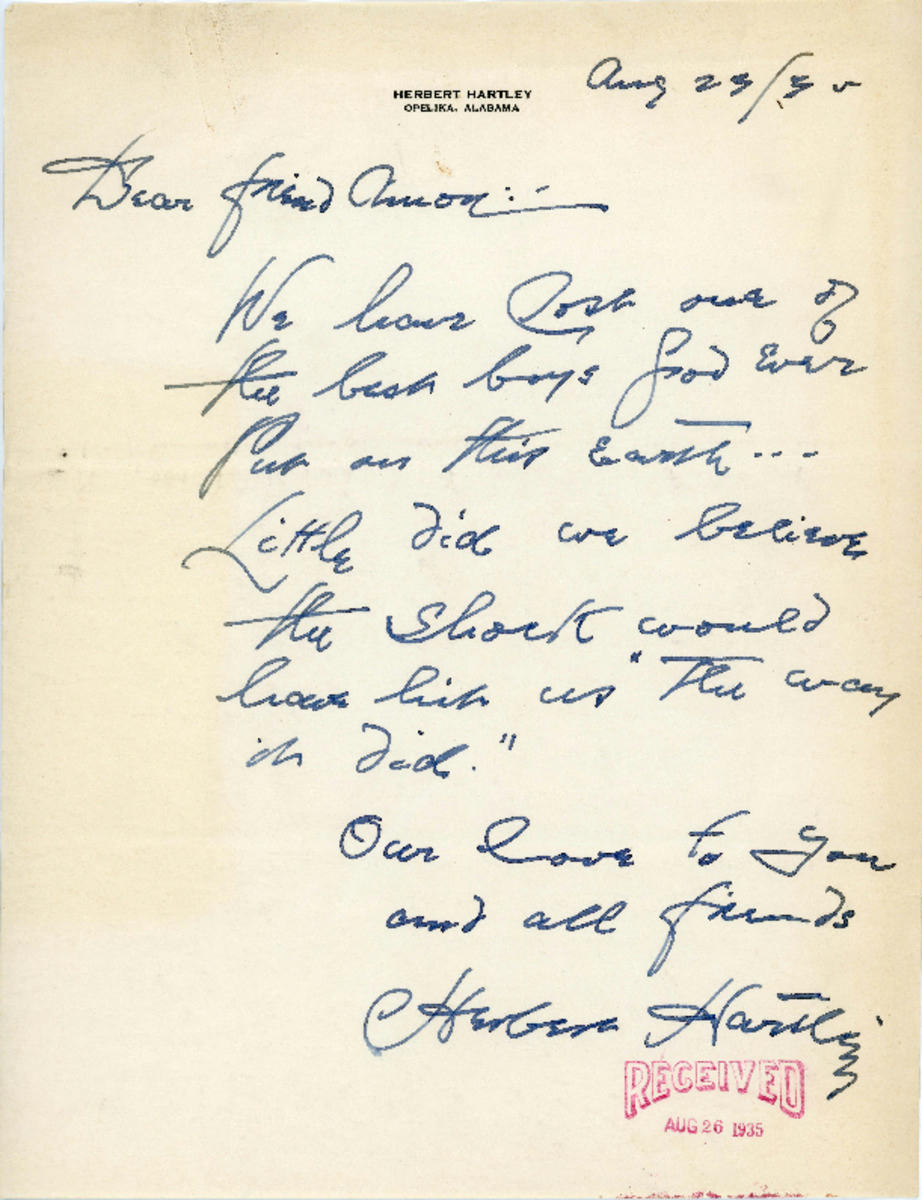 HERBERT HARTLEY
OPELIKA, ALABAMA
Aug 23/35
Dear friend Amon:—
We have Lost one of
the best boys God Ever
Put on this Earth...
Little did we believe
the Shock would
have hit us "The way
it did."
Our love to You
and all friends
Herbert Hartley
RECEIVED
AUG 26 1935